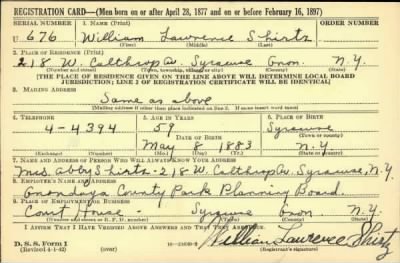 REGISTRATION CARD—(Men born on or after April 28, 1877 and on or before February 16, 1897)
SERIAL NUMBER 1. NAME (Print) ORDER NUMBER
U 676 William Lawrence Shirtz
(First) (Middle) (Last)
2. PLACE OF RESIDENCE (Print)
218 W. Calthrop Av. Syracuse Onon. N.Y.
(Number and street) (Town, township, village, or city) (County) (State)
[THE PLACE OF RESIDENCE GIVEN ON THE LINE ABOVE WILL DETERMINE LOCAL BOARD
JURISDICTION; LINE 2 OF REGISTRATION CERTIFICATE WILL BE IDENTICAL]
3. MAILING ADDRESS
Same as above
[Mailing address if other than place indicated on line 2. If same insert word same]
4. TELEPHONE 5. AGE IN YEARS 6. PLACE OF BIRTH
4-4394 59 Syracuse
DATE OF BIRTH (Town or county)
May 8 1883 N.Y.
(Mo.) (Day) (Yr.) (State or country)
7. NAME AND ADDRESS OF PERSON WHO WILL ALWAYS KNOW YOUR ADDRESS
Mrs. Abby Shirtz - 218 W. Calthrop Av. Syracuse, N.Y.
8. EMPLOYER'S NAME AND ADDRESS
Onondaga County Park Planning Board.
9. PLACE OF EMPLOYMENT OR BUSINESS
Court House - Syracuse Onon. N.Y.
(Number and street or R. F. D. number) (Town) (County) (State)
I AFFIRM THAT I HAVE VERIFIED ABOVE ANSWERS AND THAT THEY ARE TRUE.
D. S. S. Form 1
(Revised 4-1-42) (over) William Lawrence Shirtz
(Registrant's signature)